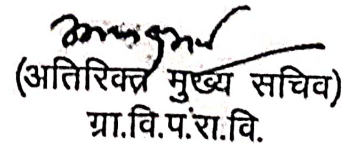 (अतिरिक्त मुख्य सचिव)
ग्रा.वि.पं.रा.वि.